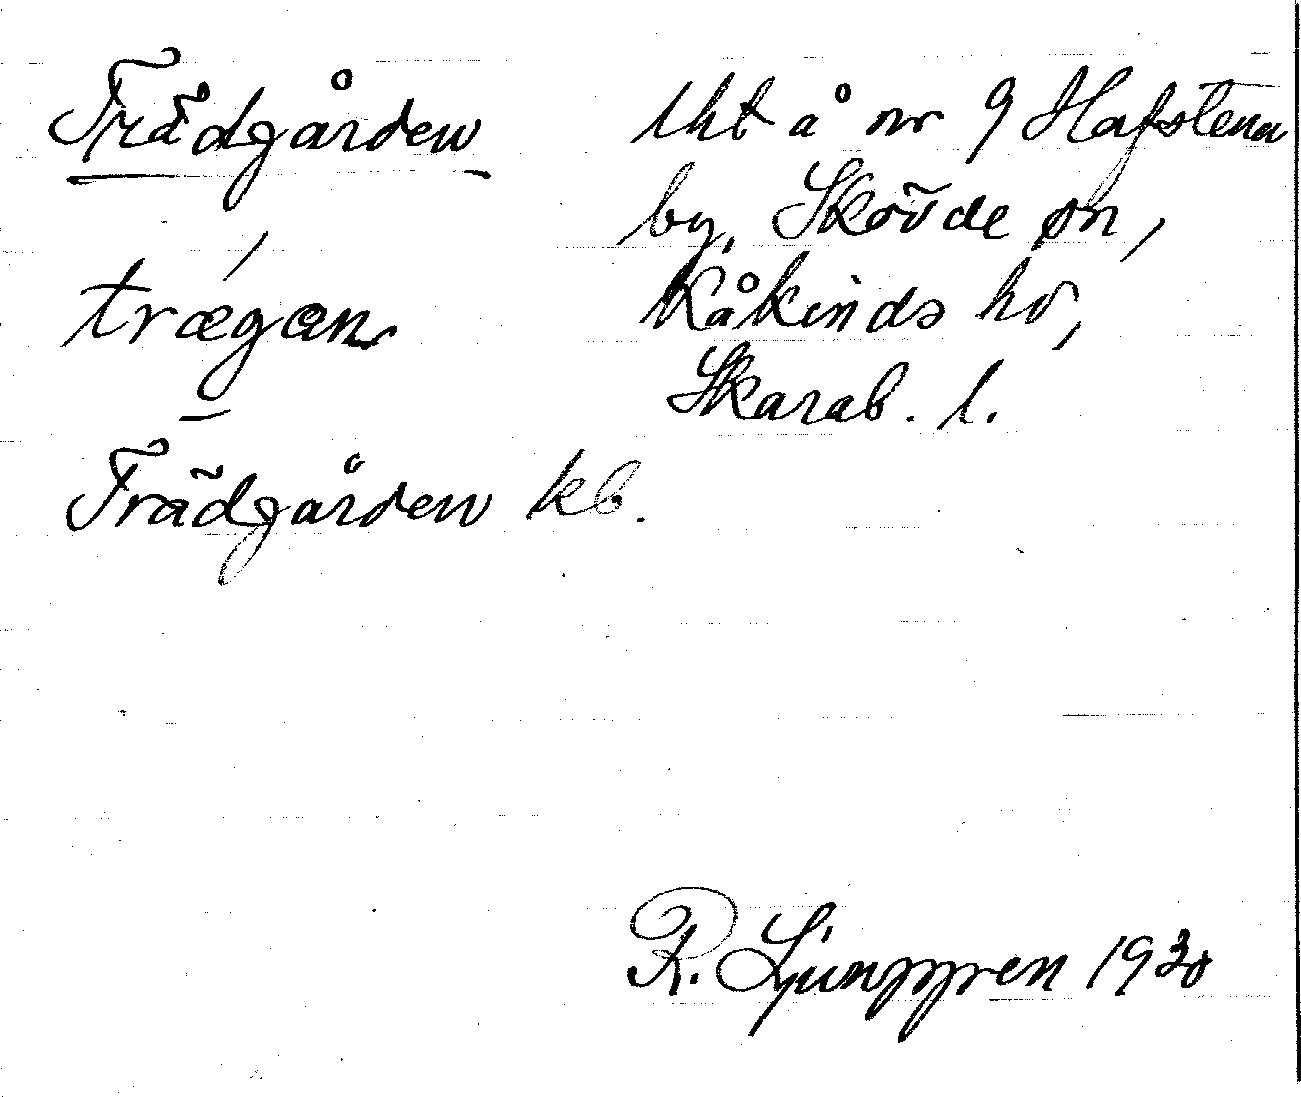 Trädgården
trægæn
Trädgården kb.
lht å nr 9 Hafstena
by, Skövde sn,
Kåkinds hd,
Skarab. l.
R. Ljunggren 1930